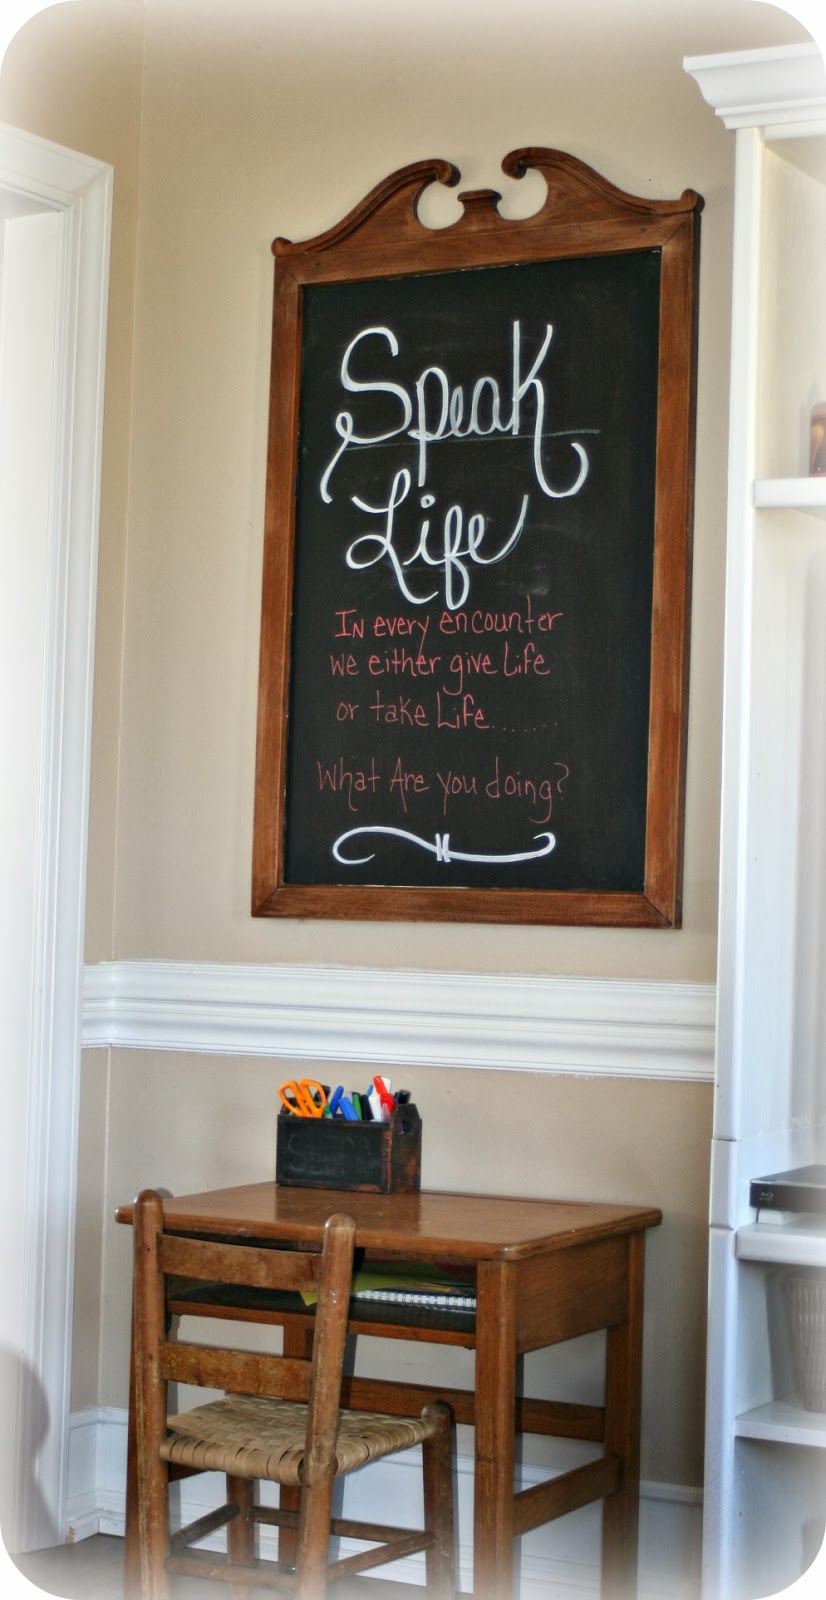 Speak
Life
In every encounter
we either give Life
or take Life.......
What Are you doing?